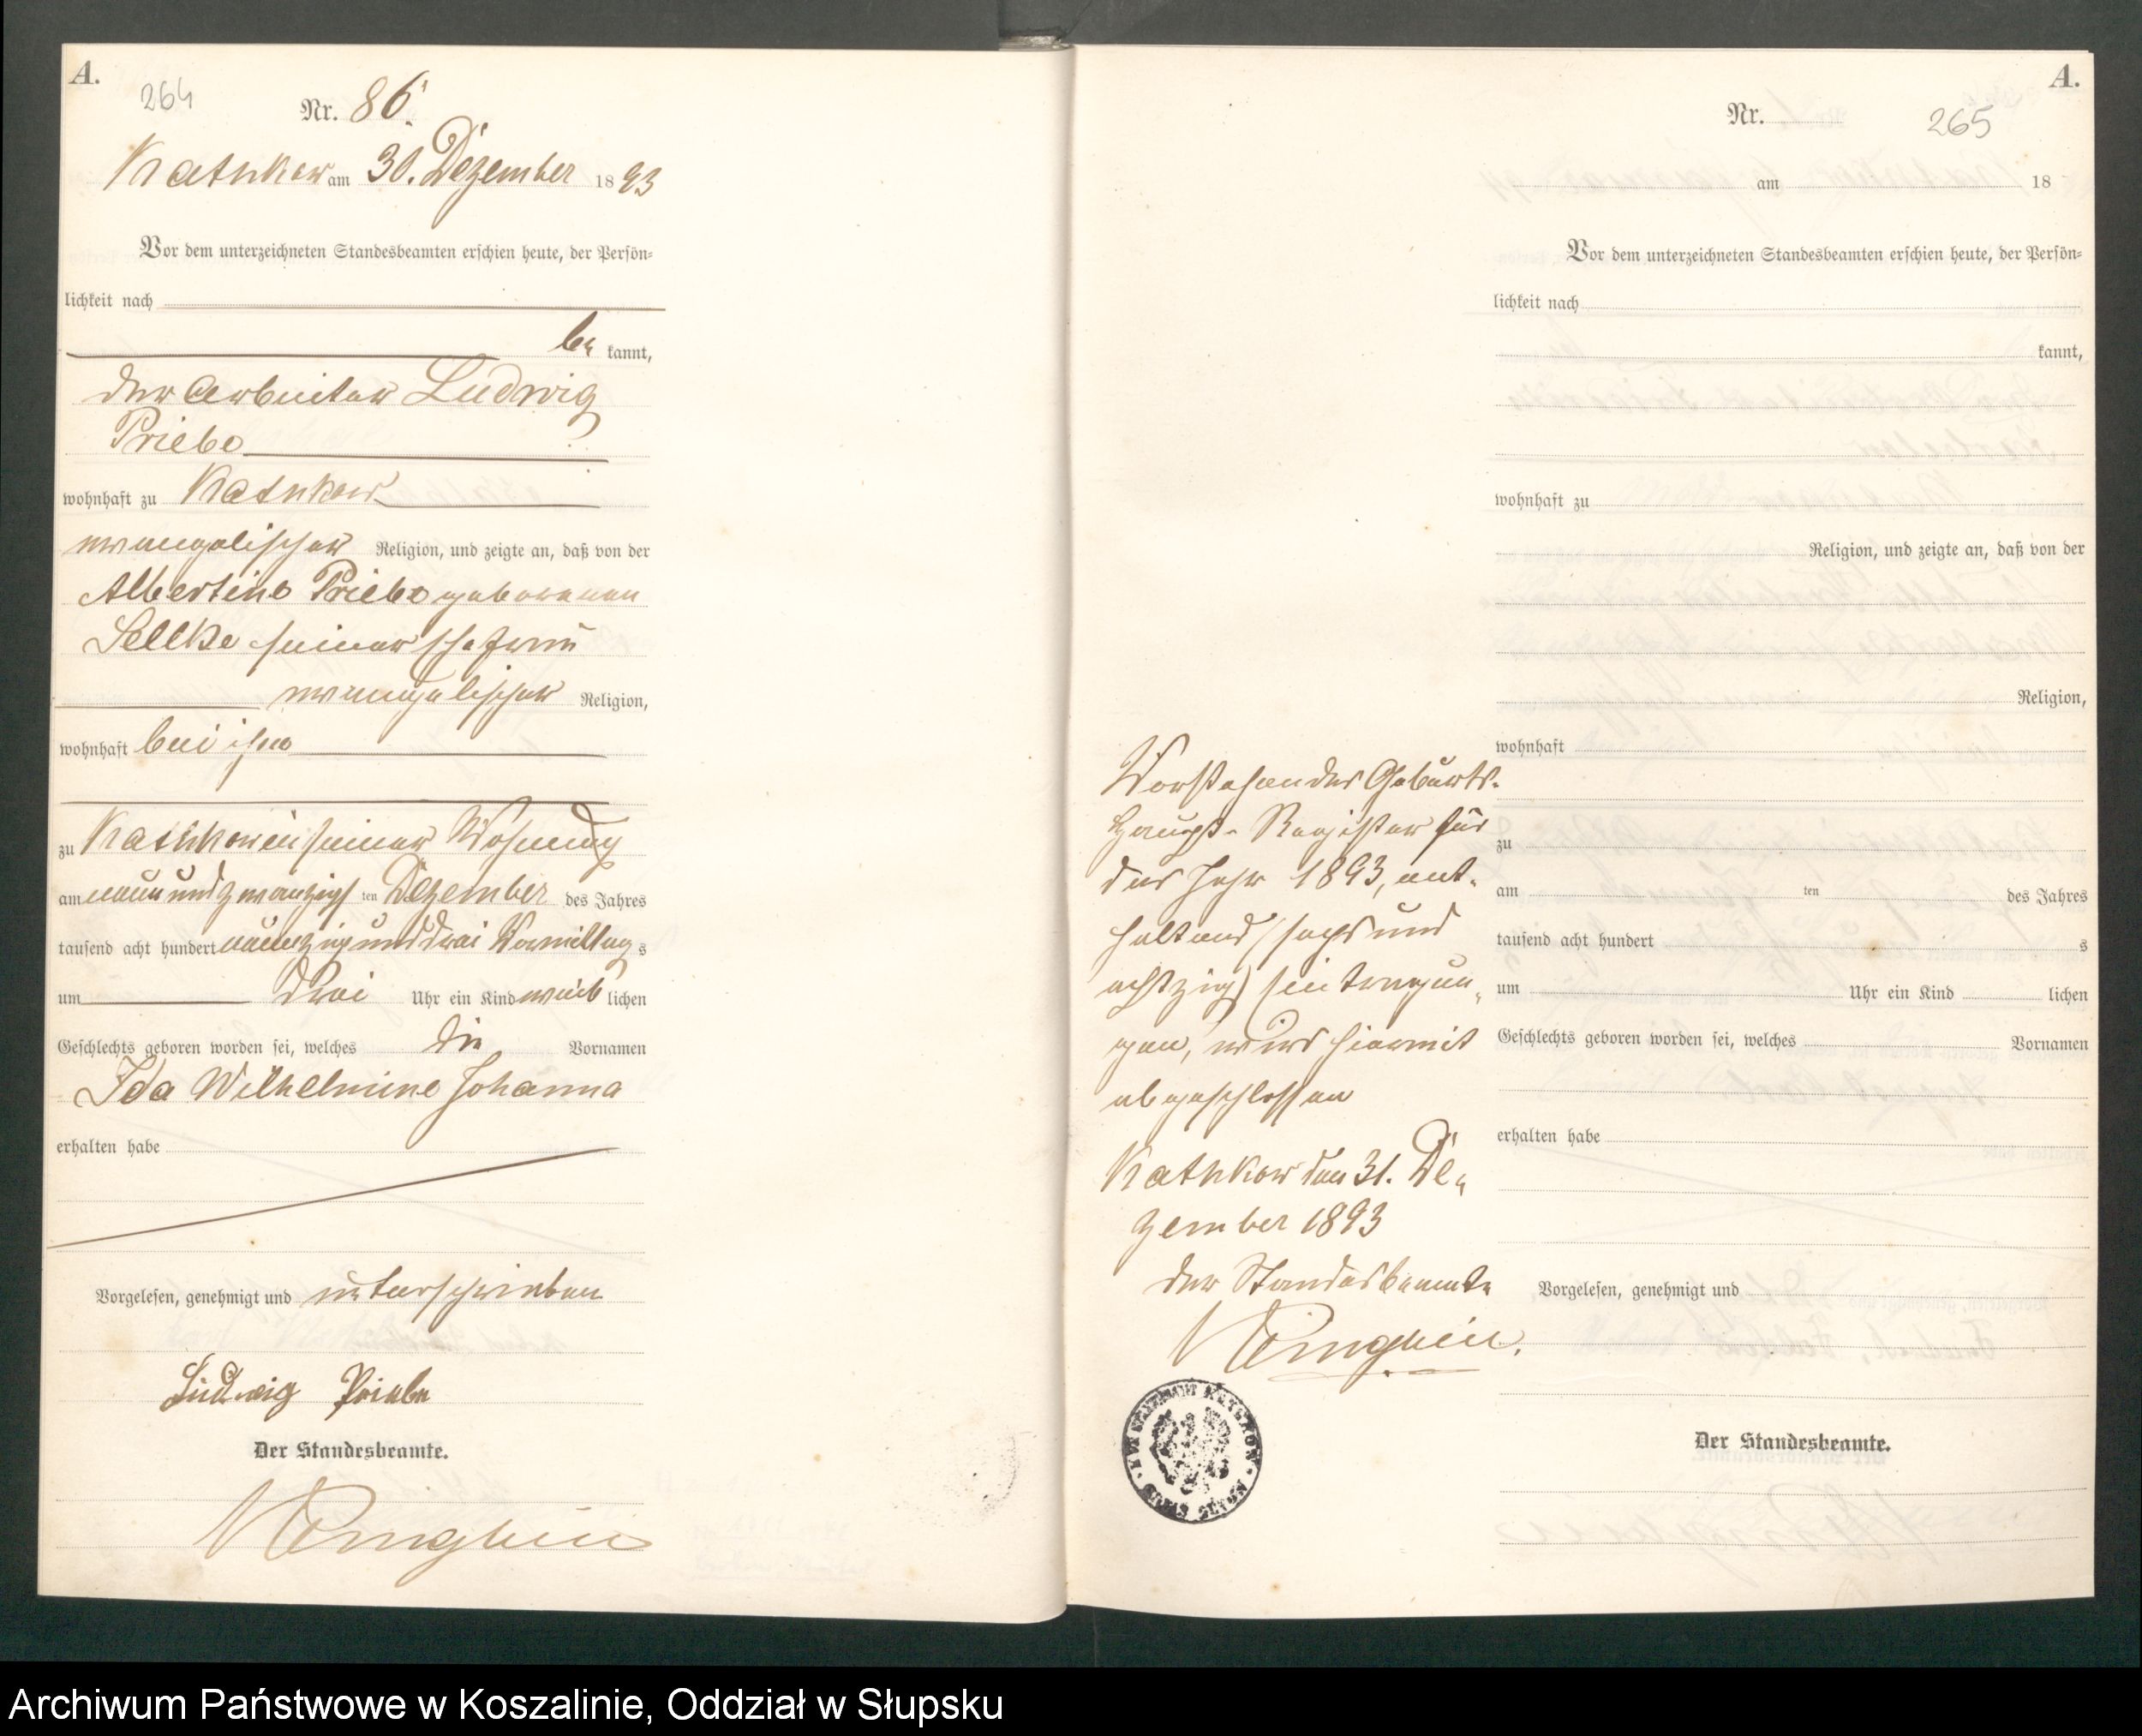 A.
264
Nr. 86.
Kathkow am 30. Dezember 1893
Vor dem unterzeichneten Standesbeamten erschien heute, der Persön-
lichkeit nach
be kannt,
der Arbeiter Ludwig
Priebe
wohnhaft zu Kathkow
evangelischer Religion, und zeigte an, daß von der
Albertine Priebe geborenen
Sellke seiner Ehefrau
evangelischer Religion,
wohnhaft bei ihm
zu Kathkow in seiner Wohnung
am neun und zwanzigs ten Dezember des Jahres
tausend acht hundert neunzig und drei Vormittag s
um drei Uhr ein Kind weib lichen
Geschlechts geboren worden sei, welches die Vornamen
Ida Wilhelmine Johanna
erhalten habe
Vorgelesen, genehmigt und unterschrieben
Ludwig Priebe
Der Standesbeamte.
A.
Nr.
265
am 18
Vor dem unterzeichneten Standesbeamten erschien heute, der Persön-
lichkeit nach
kannt,
wohnhaft zu
Religion, und zeigte an, daß von der
Religion,
wohnhaft
zu
am ten des Jahres
tausend acht hundert s
um Uhr ein Kind lichen
Geschlechts geboren worden sei, welches Vornamen
erhalten habe
Vorgelesen, genehmigt und
Der Standesbeamte.
Vorstehendes Geburts-
Haupt-Register für
das Jahr 1893, ent-
haltend (sechs und
achtzig) Eintragun-
gen, wird hiermit
abgeschlossen
Kathkow den 31. De-
zember 1893
Der Standesbeamte
Archiwum Państwowe w Koszalinie, Oddział w Słupsku